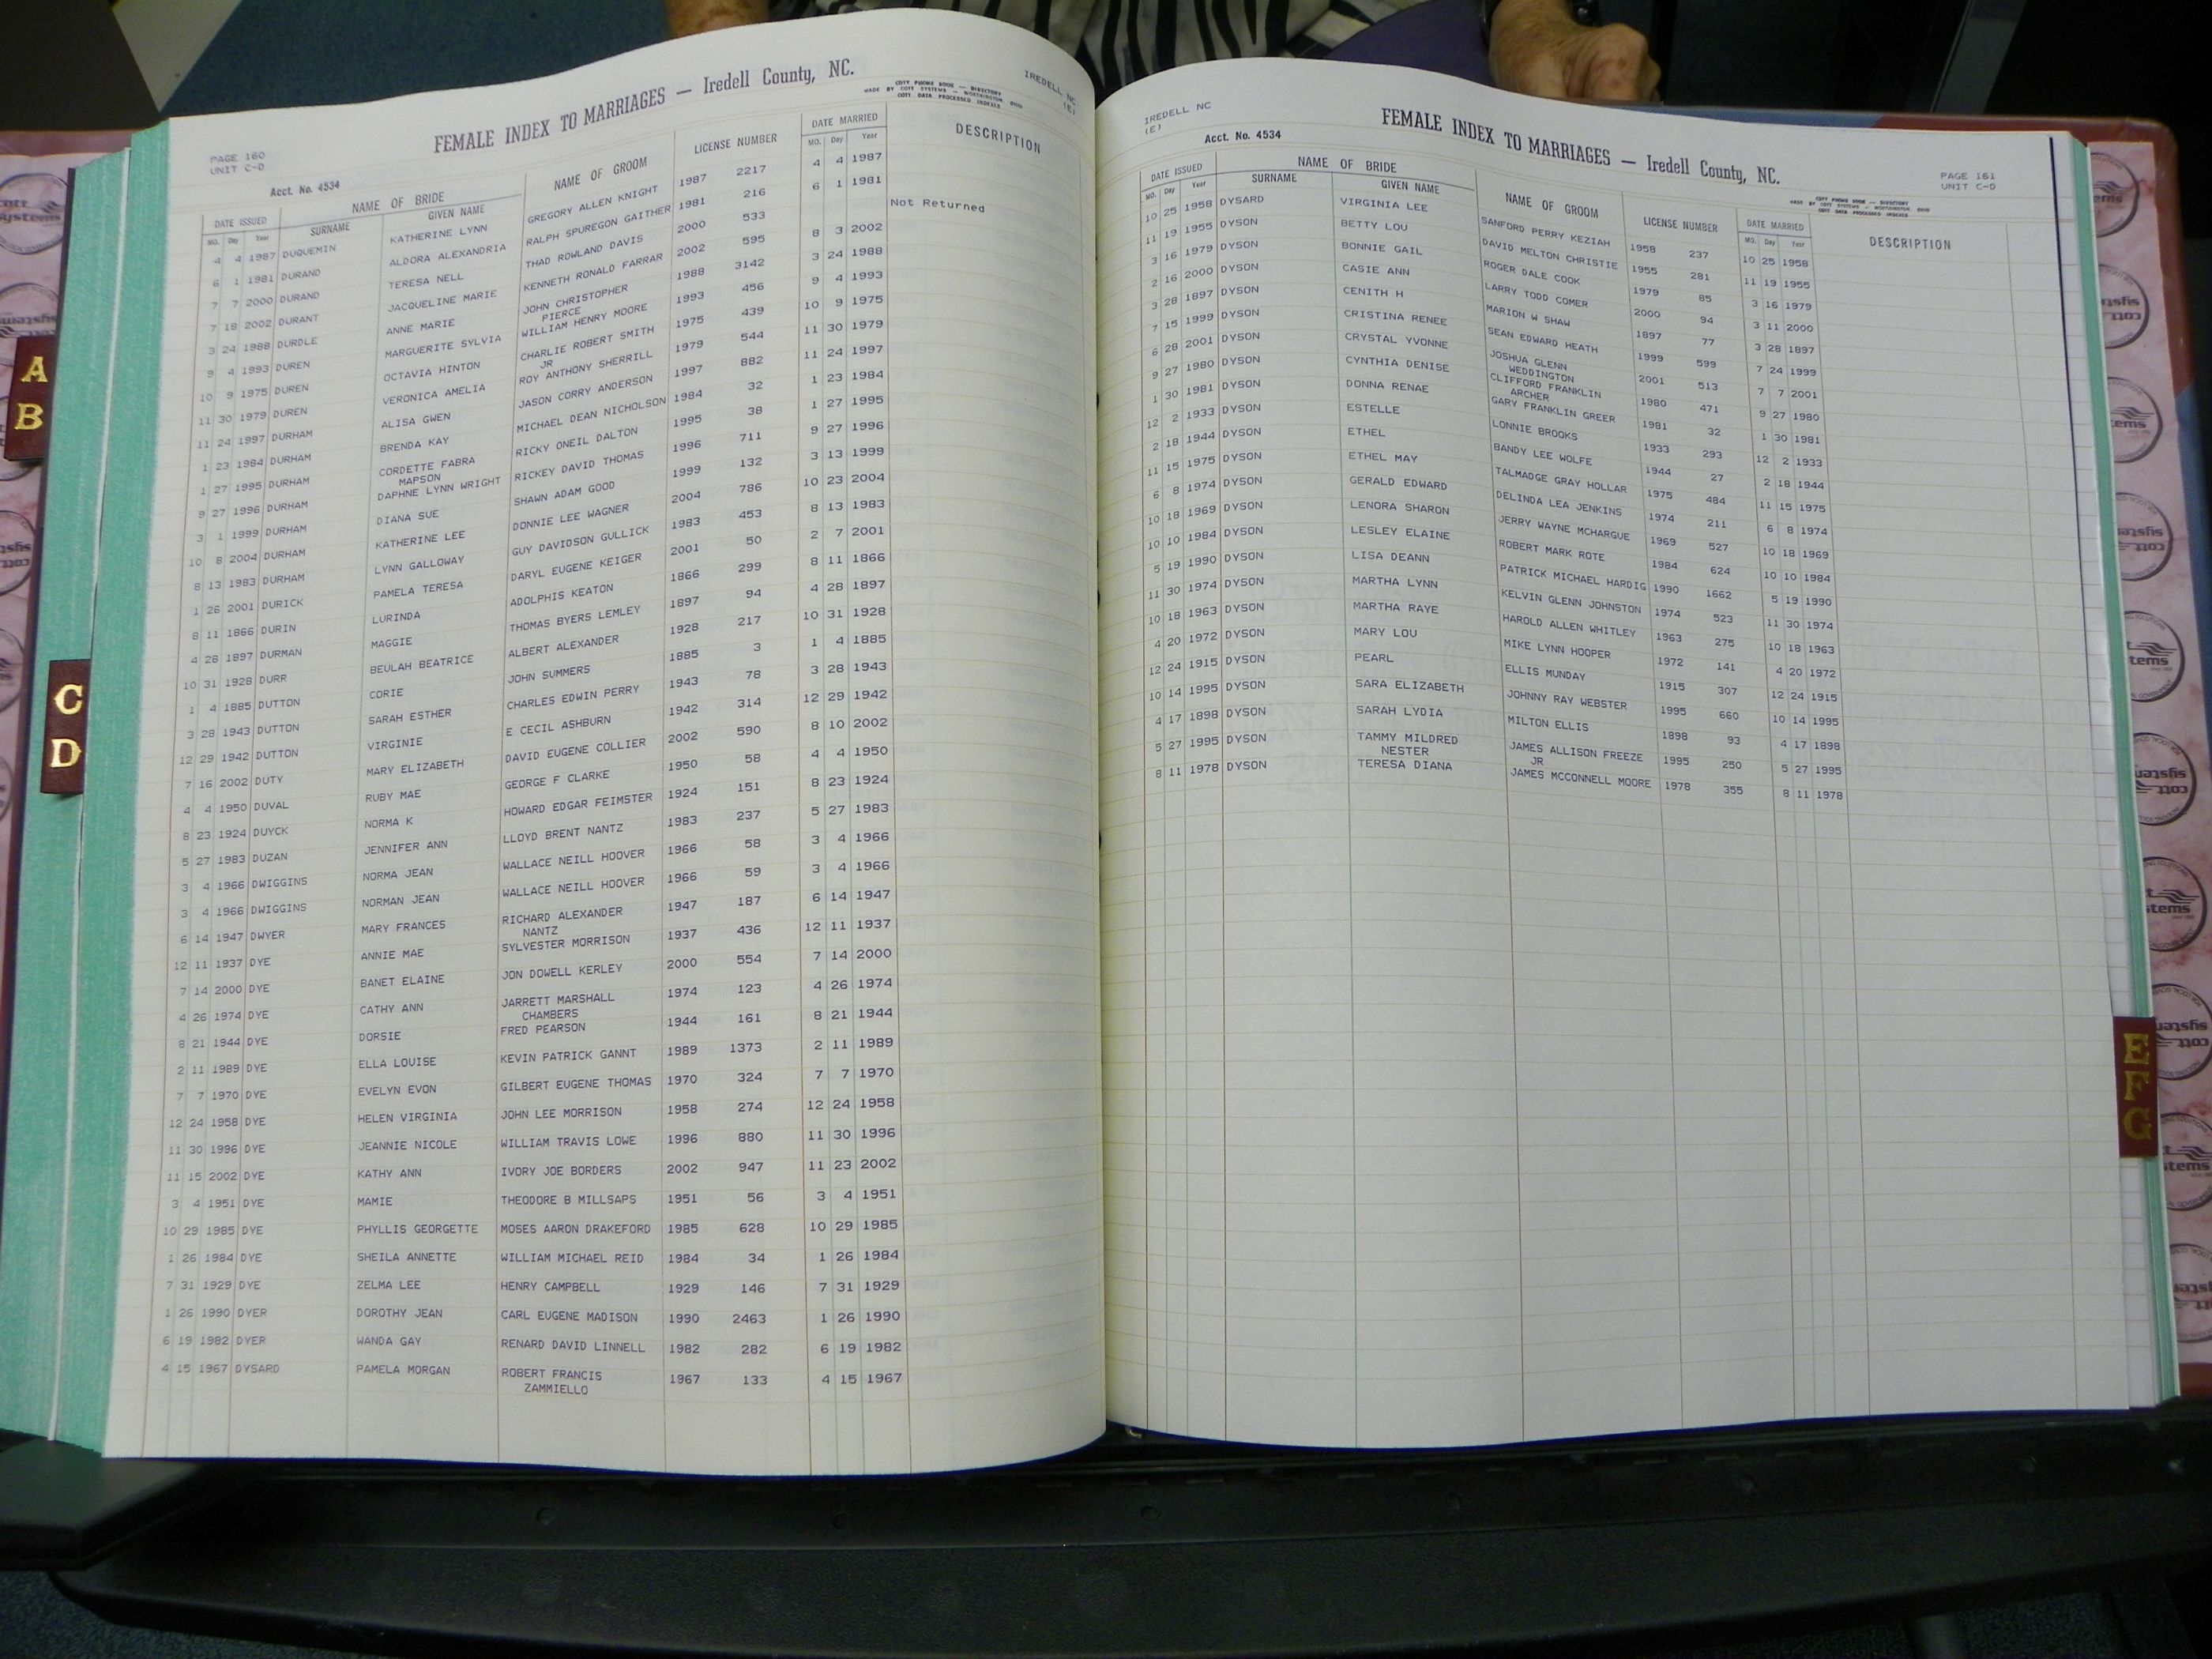 PAGE 160
UNIT C-D
FEMALE INDEX TO MARRIAGES — Iredell County, NC.
COTT PHONE BOOK — DIRECTORY
MADE BY COTT SYSTEMS — WORTHINGTON, OHIO
COTT DATA PROCESSED INDEXES
IREDELL NC
(E)
Acct. No. 4534
DATE ISSUED NAME OF BRIDE NAME OF GROOM LICENSE NUMBER DATE MARRIED DESCRIPTION
MO. Day Year SURNAME GIVEN NAME MO. Day Year
4 4 1987 DUQUEMIN KATHERINE LYNN GREGORY ALLEN KNIGHT 1987 2217 4 4 1987
6 1 1981 DURAND ALDORA ALEXANDRIA RALPH SPURGEON GAITHER 1981 216 6 1 1981
7 7 2000 DURAND TERESA NELL THAD ROWLAND DAVIS 2000 533 Not Returned
7 18 2002 DURANT JACQUELINE MARIE KENNETH RONALD FARRAR 2002 595 8 3 2002
3 24 1988 DURDLE ANNE MARIE JOHN CHRISTOPHER 1988 3142 3 24 1988
PIERCE
9 4 1993 DUREN MARGUERITE SYLVIA WILLIAM HENRY MOORE 1993 456 9 4 1993
10 9 1975 DUREN OCTAVIA HINTON CHARLIE ROBERT SMITH 1975 439 10 9 1975
JR
11 30 1979 DUREN VERONICA AMELIA ROY ANTHONY SHERRILL 1979 544 11 30 1979
11 24 1997 DURHAM ALISA GWEN JASON CORRY ANDERSON 1997 882 11 24 1997
1 23 1984 DURHAM BRENDA KAY MICHAEL DEAN NICHOLSON 1984 32 1 23 1984
1 27 1995 DURHAM CORDETTE FABRA RICKY ONEIL DALTON 1995 38 1 27 1995
MAPSON
9 27 1996 DURHAM DAPHNE LYNN WRIGHT RICKEY DAVID THOMAS 1996 711 9 27 1996
3 1 1999 DURHAM DIANA SUE SHAWN ADAM GOOD 1999 132 3 13 1999
10 8 2004 DURHAM KATHERINE LEE DONNIE LEE WAGNER 2004 786 10 23 2004
8 13 1983 DURHAM LYNN GALLOWAY GUY DAVIDSON GULLICK 1983 453 8 13 1983
1 26 2001 DURICK PAMELA TERESA DARYL EUGENE KEIGER 2001 50 2 7 2001
8 11 1866 DURIN LURINDA ADOLPHIS KEATON 1866 299 8 11 1866
4 28 1897 DURMAN MAGGIE THOMAS BYERS LEMLEY 1897 94 4 28 1897
10 31 1928 DURR BEULAH BEATRICE ALBERT ALEXANDER 1928 217 10 31 1928
1 4 1885 DUTTON CORIE JOHN SUMMERS 1885 3 1 4 1885
3 28 1943 DUTTON SARAH ESTHER CHARLES EDWIN PERRY 1943 78 3 28 1943
12 29 1942 DUTTON VIRGINIE E CECIL ASHBURN 1942 314 12 29 1942
7 16 2002 DUTY MARY ELIZABETH DAVID EUGENE COLLIER 2002 590 8 10 2002
4 4 1950 DUVAL RUBY MAE GEORGE F CLARKE 1950 58 4 4 1950
8 23 1924 DUYCK NORMA K HOWARD EDGAR FEIMSTER 1924 151 8 23 1924
5 27 1983 DUZAN JENNIFER ANN LLOYD BRENT NANTZ 1983 237 5 27 1983
3 4 1966 DWIGGINS NORMA JEAN WALLACE NEILL HOOVER 1966 58 3 4 1966
3 4 1966 DWIGGINS NORMAN JEAN WALLACE NEILL HOOVER 1966 59 3 4 1966
6 14 1947 DWYER MARY FRANCES RICHARD ALEXANDER 1947 187 6 14 1947
NANTZ
12 11 1937 DYE ANNIE MAE SYLVESTER MORRISON 1937 436 12 11 1937
7 14 2000 DYE BANET ELAINE JON DOWELL KERLEY 2000 554 7 14 2000
4 26 1974 DYE CATHY ANN JARRETT MARSHALL 1974 123 4 26 1974
CHAMBERS
8 21 1944 DYE DORSIE FRED PEARSON 1944 161 8 21 1944
2 11 1989 DYE ELLA LOUISE KEVIN PATRICK GANNT 1989 1373 2 11 1989
7 7 1970 DYE EVELYN EVON GILBERT EUGENE THOMAS 1970 324 7 7 1970
12 24 1958 DYE HELEN VIRGINIA JOHN LEE MORRISON 1958 274 12 24 1958
11 30 1996 DYE JEANNIE NICOLE WILLIAM TRAVIS LOWE 1996 880 11 30 1996
11 15 2002 DYE KATHY ANN IVORY JOE BORDERS 2002 947 11 23 2002
3 4 1951 DYE MAMIE THEODORE B MILLSAPS 1951 56 3 4 1951
10 29 1985 DYE PHYLLIS GEORGETTE MOSES AARON DRAKEFORD 1985 628 10 29 1985
1 26 1984 DYE SHEILA ANNETTE WILLIAM MICHAEL REID 1984 34 1 26 1984
7 31 1929 DYE ZELMA LEE HENRY CAMPBELL 1929 146 7 31 1929
1 26 1990 DYER DOROTHY JEAN CARL EUGENE MADISON 1990 2463 1 26 1990
6 19 1982 DYER WANDA GAY RENARD DAVID LINNELL 1982 282 6 19 1982
4 15 1967 DYSARD PAMELA MORGAN ROBERT FRANCIS 1967 133 4 15 1967
ZAMMIELLO
IREDELL NC
(E)
Acct. No. 4534
FEMALE INDEX TO MARRIAGES — Iredell County, NC.
PAGE 161
UNIT C-D
COTT PHONE BOOK — DIRECTORY
MADE BY COTT SYSTEMS — WORTHINGTON, OHIO
COTT DATA PROCESSED INDEXES
DATE ISSUED NAME OF BRIDE NAME OF GROOM LICENSE NUMBER DATE MARRIED DESCRIPTION
MO. Day Year SURNAME GIVEN NAME MO. Day Year
10 25 1958 DYSARD VIRGINIA LEE SANFORD PERRY KEZIAH 1958 237 10 25 1958
11 19 1955 DYSON BETTY LOU DAVID MELTON CHRISTIE 1955 281 11 19 1955
3 16 1979 DYSON BONNIE GAIL ROGER DALE COOK 1979 85 3 16 1979
2 16 2000 DYSON CASIE ANN LARRY TODD COMER 2000 94 3 11 2000
3 28 1897 DYSON CENITH H MARION W SHAW 1897 77 3 28 1897
7 15 1999 DYSON CRISTINA RENEE SEAN EDWARD HEATH 1999 599 7 24 1999
6 28 2001 DYSON CRYSTAL YVONNE JOSHUA GLENN 2001 513 7 7 2001
WEDDINGTON
9 27 1980 DYSON CYNTHIA DENISE CLIFFORD FRANKLIN 1980 471 9 27 1980
ARCHER
1 30 1981 DYSON DONNA RENAE GARY FRANKLIN GREER 1981 32 1 30 1981
12 2 1933 DYSON ESTELLE LONNIE BROOKS 1933 293 12 2 1933
2 18 1944 DYSON ETHEL BANDY LEE WOLFE 1944 27 2 18 1944
11 15 1975 DYSON ETHEL MAY TALMADGE GRAY HOLLAR 1975 484 11 15 1975
6 8 1974 DYSON GERALD EDWARD DELINDA LEA JENKINS 1974 211 6 8 1974
10 18 1969 DYSON LENORA SHARON JERRY WAYNE MCHARGUE 1969 527 10 18 1969
10 10 1984 DYSON LESLEY ELAINE ROBERT MARK ROTE 1984 624 10 10 1984
5 19 1990 DYSON LISA DEANN PATRICK MICHAEL HARDIG 1990 1662 5 19 1990
11 30 1974 DYSON MARTHA LYNN KELVIN GLENN JOHNSTON 1974 523 11 30 1974
10 18 1963 DYSON MARTHA RAYE HAROLD ALLEN WHITLEY 1963 275 10 18 1963
4 20 1972 DYSON MARY LOU MIKE LYNN HOOPER 1972 141 4 20 1972
12 24 1915 DYSON PEARL ELLIS MUNDAY 1915 307 12 24 1915
10 14 1995 DYSON SARA ELIZABETH JOHNNY RAY WEBSTER 1995 660 10 14 1995
4 17 1898 DYSON SARAH LYDIA MILTON ELLIS 1898 93 4 17 1898
5 27 1995 DYSON TAMMY MILDRED JAMES ALLISON FREEZE 1995 250 5 27 1995
NESTER JR
8 11 1978 DYSON TERESA DIANA JAMES MCCONNELL MOORE 1978 355 8 11 1978
A
B
C
D
E
F
G
cott
systems